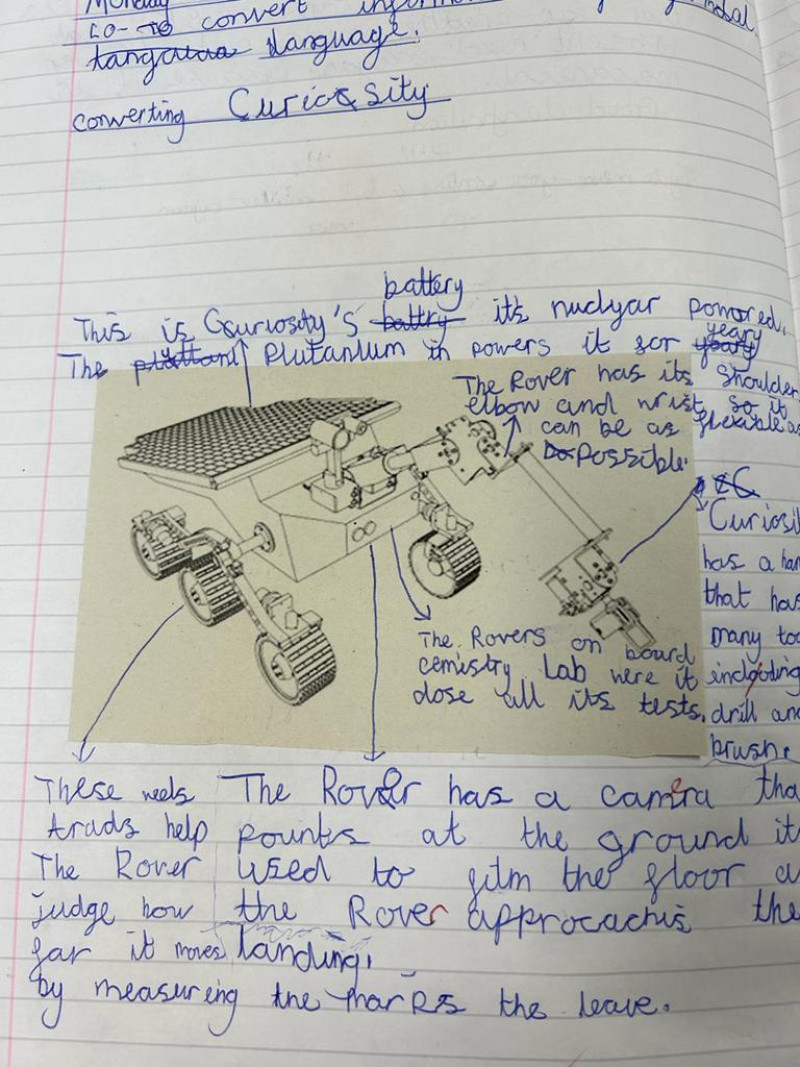 Monday
convert
language.
converting Curiosity
battery
This is Curiosity's it's nuclyar powored.
The Plutanium in powers it for yeary
The Rover has its Shoulder,
elbow and wrist so it
can be as flexible as
Possible.
Curiosi
has a han
that has
many too
incluoting
drill and
brush.
The Rovers on board
cemistry Lab were it
dose all its tests.
These weels
trads help
The Rover
judge how
far it moves
by measureing the marks the leave.
The Rover has a camera tha
pounts at the ground it
used to film the floor a
the Rover approcachis the
landing,